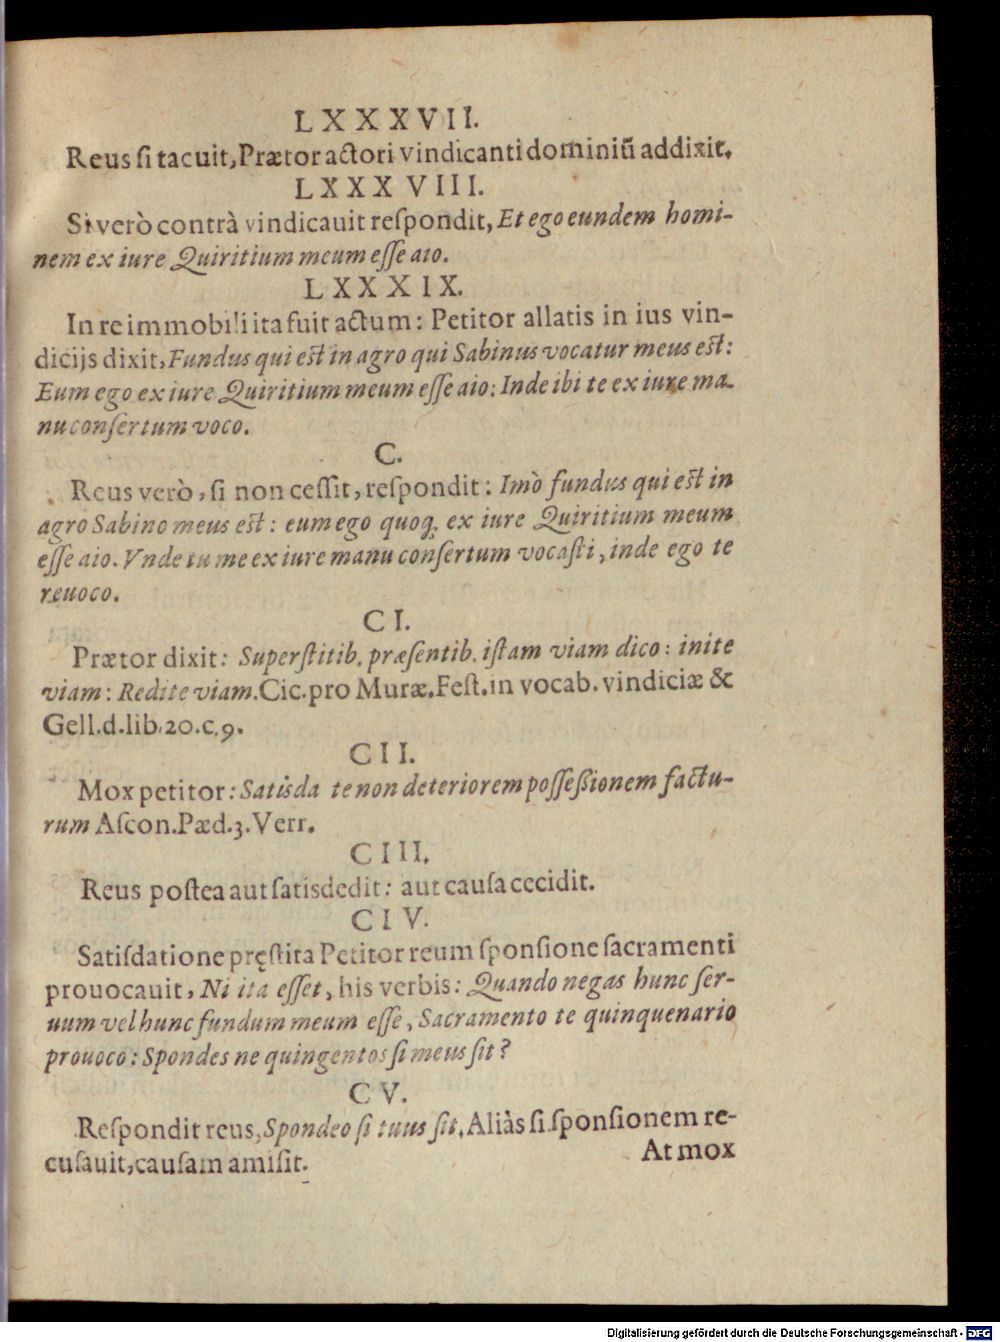 LXXXVII.
Reus ſi tacuit, Prætor actori vindicanti dominiũ addixit.
LXXXVIII.
Si verò contrà vindicauit reſpondit, Et ego eundem homi-
nem ex iure Quiritium meum eſſe aio.
LXXXIX.
In re immobili ita fuit actum: Petitor allatis in ius vin-
dicijs dixit, Fundus qui est in agro qui Sabinus vocatur meus est:
Eum ego ex iure Quiritium meum eſſe aio: Inde ibi te ex iure ma-
nu conſertum voco.
C.
Reus verò, ſi non ceſſit, reſpondit: Imò fundus qui est in
agro Sabino meus est: eum ego quoq; ex iure Quiritium meum
eſſe aio. Vnde tu me ex iure manu conſertum vocaſti, inde ego te
reuoco.
CI.
Prætor dixit: Superſtitib. præſentib. iſtam viam dico: inite
viam: Redite viam. Cic. pro Muræ. Feſt. in vocab. vindiciæ &
Gell. d. lib. 20. c. 9.
CII.
Mox petitor: Satisda te non deteriorem poſſeßionem factu-
rum Aſcon. Pæd. 3. Verr.
CIII.
Reus poſtea aut ſatisdedit: aut cauſa cecidit.
CIV.
Satiſdatione pręſtita Petitor reum ſponſione ſacramenti
prouocauit, Ni ita eſſet, his verbis: Quando negas hunc ſer-
uum vel hunc fundum meum eſſe, Sacramento te quinquenario
prouoco: Spondes ne quingentos ſi meus ſit?
CV.
Reſpondit reus, Spondeo ſi tuus ſit. Aliàs ſi ſponſionem re-
cuſauit, cauſam amiſit.
At mox
Digitalisierung gefördert durch die Deutsche Forschungsgemeinschaft - DFG